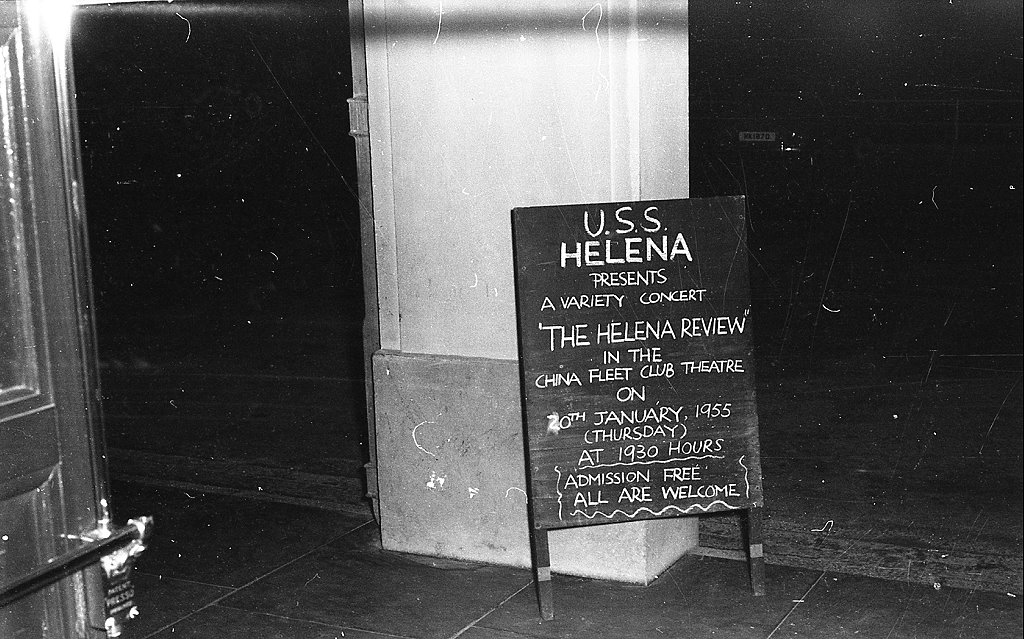 U.S.S.
HELENA
PRESENTS
A VARIETY CONCERT
"THE HELENA REVIEW"
IN THE
CHINA FLEET CLUB THEATRE
ON
20TH JANUARY, 1955
(THURSDAY)
AT 1930 HOURS
ADMISSION FREE
ALL ARE WELCOME
HK1870